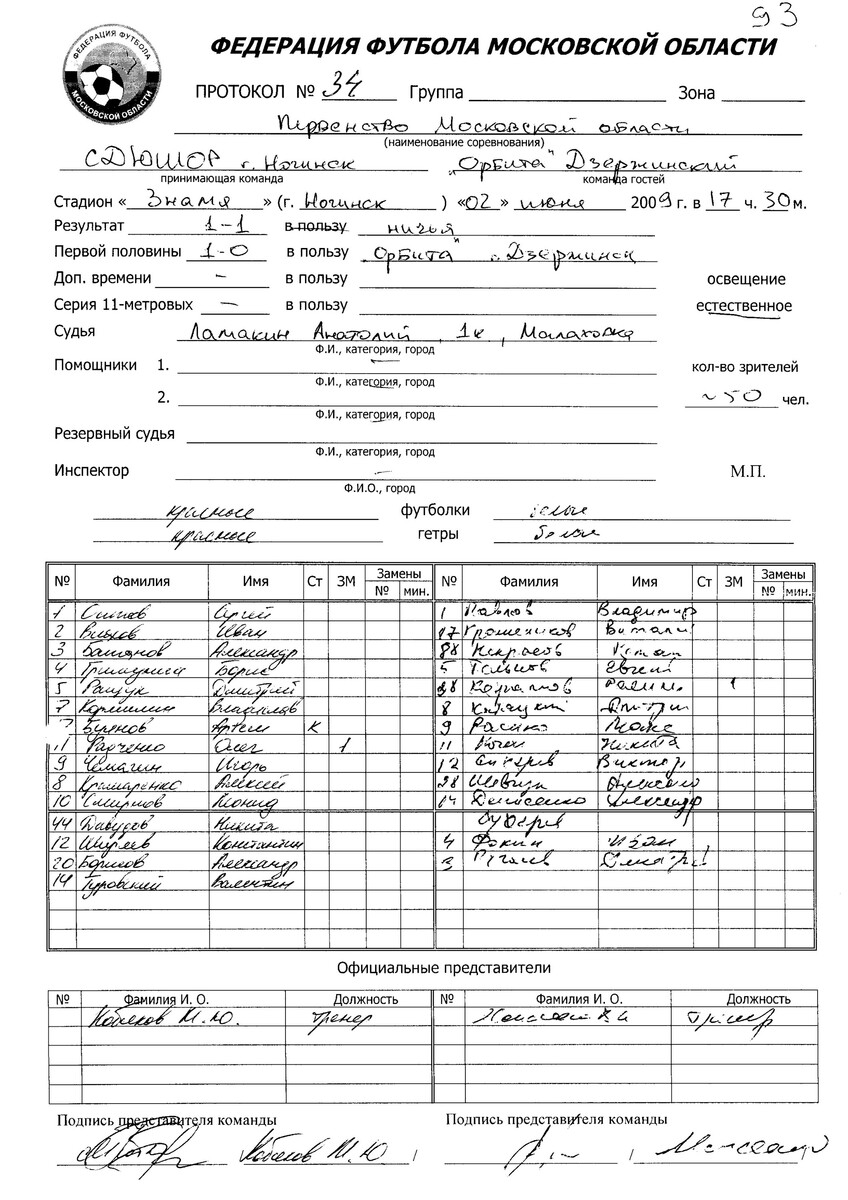 93
ФЕДЕРАЦИЯ ФУТБОЛА МОСКОВСКОЙ ОБЛАСТИ
ФЕДЕРАЦИЯ ФУТБОЛА
МОСКОВСКОЙ ОБЛАСТИ
ПРОТОКОЛ № 34 Группа Зона
Первенство Московской области
(наименование соревнования)
СДЮШОР г. Ногинск "Орбита" Дзержинский
принимающая команда команда гостей
Стадион « Знамя » (г. Ногинск ) «02» июня 2009 г. в 17 ч. 30 м.
Результат 1-1 в пользу ничья
Первой половины 1-0 в пользу "Орбита" г. Дзержинск
Доп. времени – в пользу освещение
Серия 11-метровых – в пользу естественное
Судья Ламакин Анатолий, 1к, Малаховка
Ф.И., категория, город
Помощники 1. – кол-во зрителей
Ф.И., категория, город
2. ~50 чел.
Ф.И., категория, город
Резервный судья
Ф.И., категория, город
Инспектор – М.П.
Ф.И.О., город
красные футболки белые
красные гетры белые
№ Фамилия Имя Ст ЗМ Замены № мин. № Фамилия Имя Ст ЗМ Замены № мин.
1 Сергей 1 Павлов Владимир
2 Иван 17 Виталий
3 Александр 88 Некрасов
4 Борис 5 Евгений
5 Ращук Дмитрий 28 1
7 Кормилин Владислав 8 Дмитрий
Артем К 9
11 Харченко Олег 1 11 Никита
9 Чемагин Игорь 12 Виктор
8 Крамаренко Алексей 28
10 Смирнов Леонид 14 Денисенко Александр
44 Давудов Никита
12 Константин 4 Фокин Иван
20 Борисов Александр 3
14 Гуровский Валентин
Официальные представители
№ Фамилия И. О. Должность № Фамилия И. О. Должность
Кобяков М.Ю. тренер тренер
Подпись представителя команды Подпись представителя команды
Кобяков М.Ю.